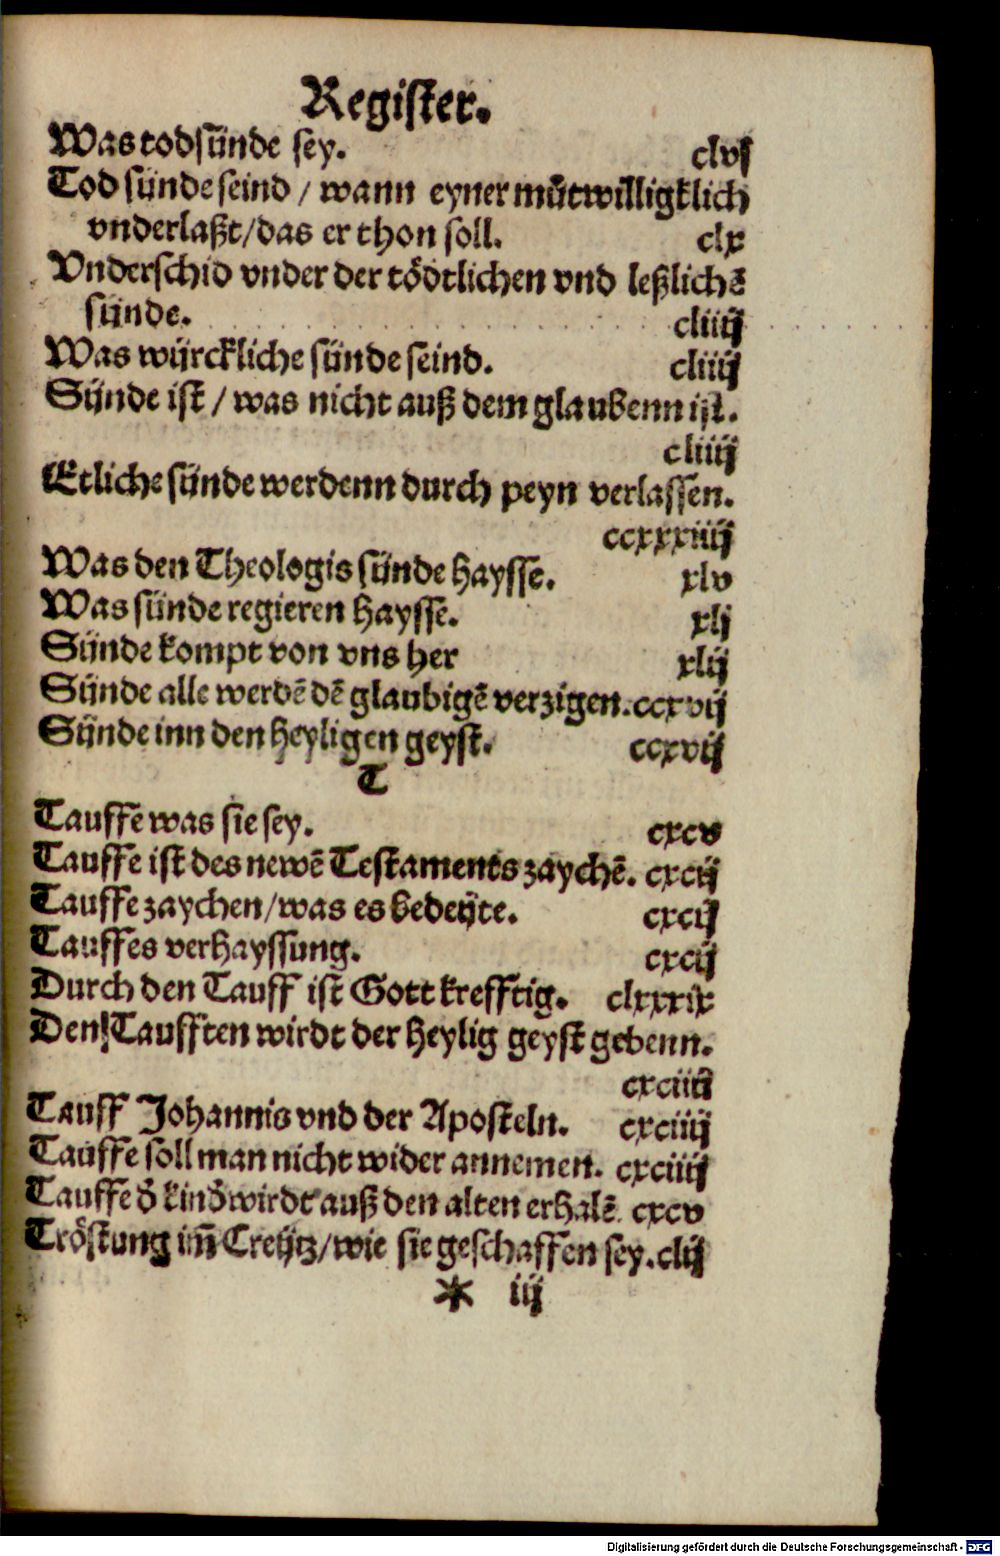 Register.
Was todsünde sey. clvj
Tod sünde seind / wann eyner můtwilligklich
vnderlaßt/das er thon soll. clx
Vnderschid vnder der tödtlichen vnd leßlichē
sünde. cliiij
Was würckliche sünde seind. cliiij
Sünde ist / was nicht auß dem glaubenn ist.
cliiij
Etliche sünde werdenn durch peyn verlassen.
ccxxxiiij
Was den Theologis sünde haysse. xlv
Was sünde regieren haysse. xlj
Sünde kompt von vns her xlij
Sünde alle werdē dē glaubigē verzigen. ccxvij
Sünde inn den heyligen geyst. ccxvij
T
Tauffe was sie sey. cxcv
Tauffe ist des newē Testaments zaychē. cxcij
Tauffe zaychen/was es bedeüte. cxcij
Tauffes verhayssung. cxcij
Durch den Tauff ist Gott krefftig. clxxxix
Den Taufften wirdt der heylig geyst gebenn.
cxciiij
Tauff Johannis vnd der Aposteln. cxciiij
Tauffe soll man nicht wider annemen. cxciiij
Tauffe d̄ kind̄ wirdt auß den alten erhalē. cxcv
Tröstung im̄ Creütz/wie sie geschaffen sey. clij
* iij
Digitalisierung gefördert durch die Deutsche Forschungsgemeinschaft - DFG